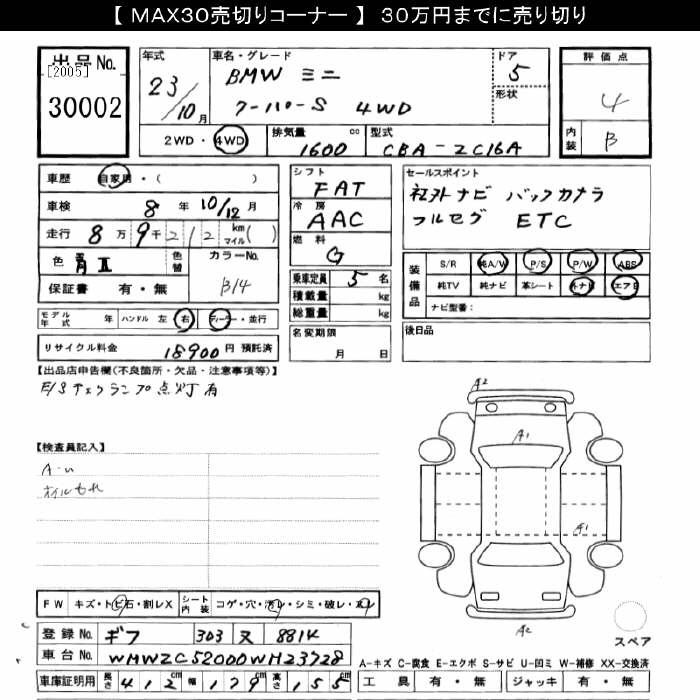 【 MAX30売切りコーナー 】 30万円までに売り切り
出品No.
[2005]
30002
年式
23/10月
車名・グレード
BMW ミニ
クーパーS 4WD
ドア
5
形状
評価点
4
内装
B
2WD・4WD
排気量
1600 cc
型式
CBA-ZC16A
車歴 自家用・( )
車検 8年 10/12月
走行 8万9千212 km マイル( )
色 青II 色替
カラーNo.
B14
保証書 有・無
シフト
FAT
冷房
AAC
燃料
G
乗車定員 5名
積載量 kg
総重量 kg
名変期限
月 日
セールスポイント
社外ナビ バックカメラ
フルセグ ETC
装備品
S/R 純A/W P/S P/W ABS
純TV 純ナビ 革シート 外ナビ エアB
ナビ型番:
後日品
モデル年式 年 ハンドル 左 右 ディーラー・並行
リサイクル料金 18900円 預託済
【出品店申告欄(不良箇所・欠品・注意事項等)】
E/Sチェックランプ点灯有
【検査員記入】
A-い
オイルもれ
A2
A1
A1
A2
スペア
FW キズ・トビ石・割レX シート内装 コゲ・穴・汚レ・シミ・破レ・スレ
登録No. ギフ 303 ヌ 8814
車台No. WMWZC52000WH23728
車庫証明用 長さ 412cm 幅 179cm 高さ 155cm
A-キズ C-腐食 E-エクボ S-サビ U-凹ミ W-補修 XX-交換済
工具 有・無 ジャッキ 有・無